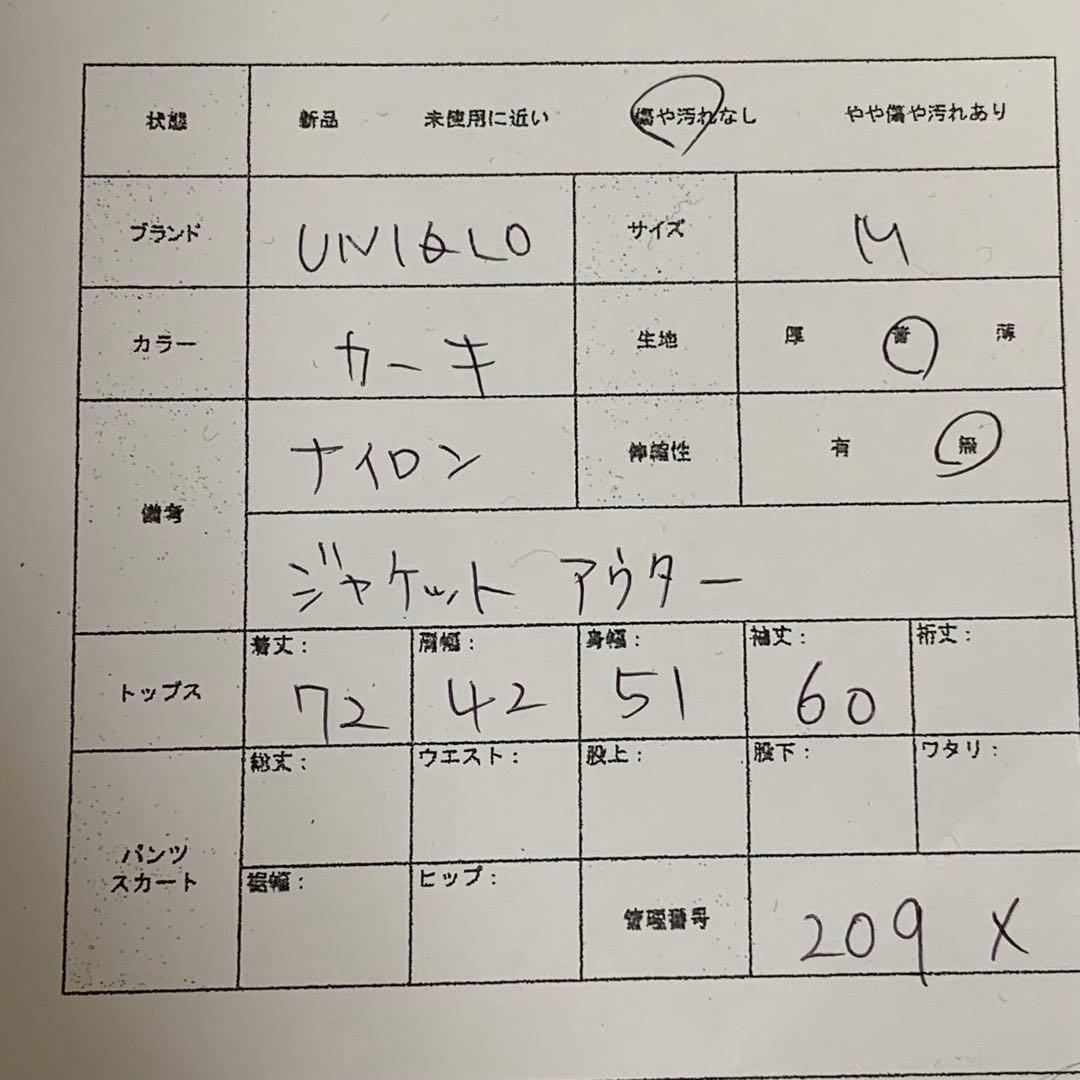 状態 新品 未使用に近い 傷や汚れなし やや傷や汚れあり
ブランド UNIQLO サイズ M
カラー カーキ 生地 厚 普 薄
備考 ナイロン 伸縮性 有 無
ジャケット アウター
トップス 着丈: 72 肩幅: 42 身幅: 51 袖丈: 60 裄丈:
パンツ スカート 総丈: ウエスト: 股上: 股下: ワタリ:
裾幅: ヒップ: 管理番号 209 X